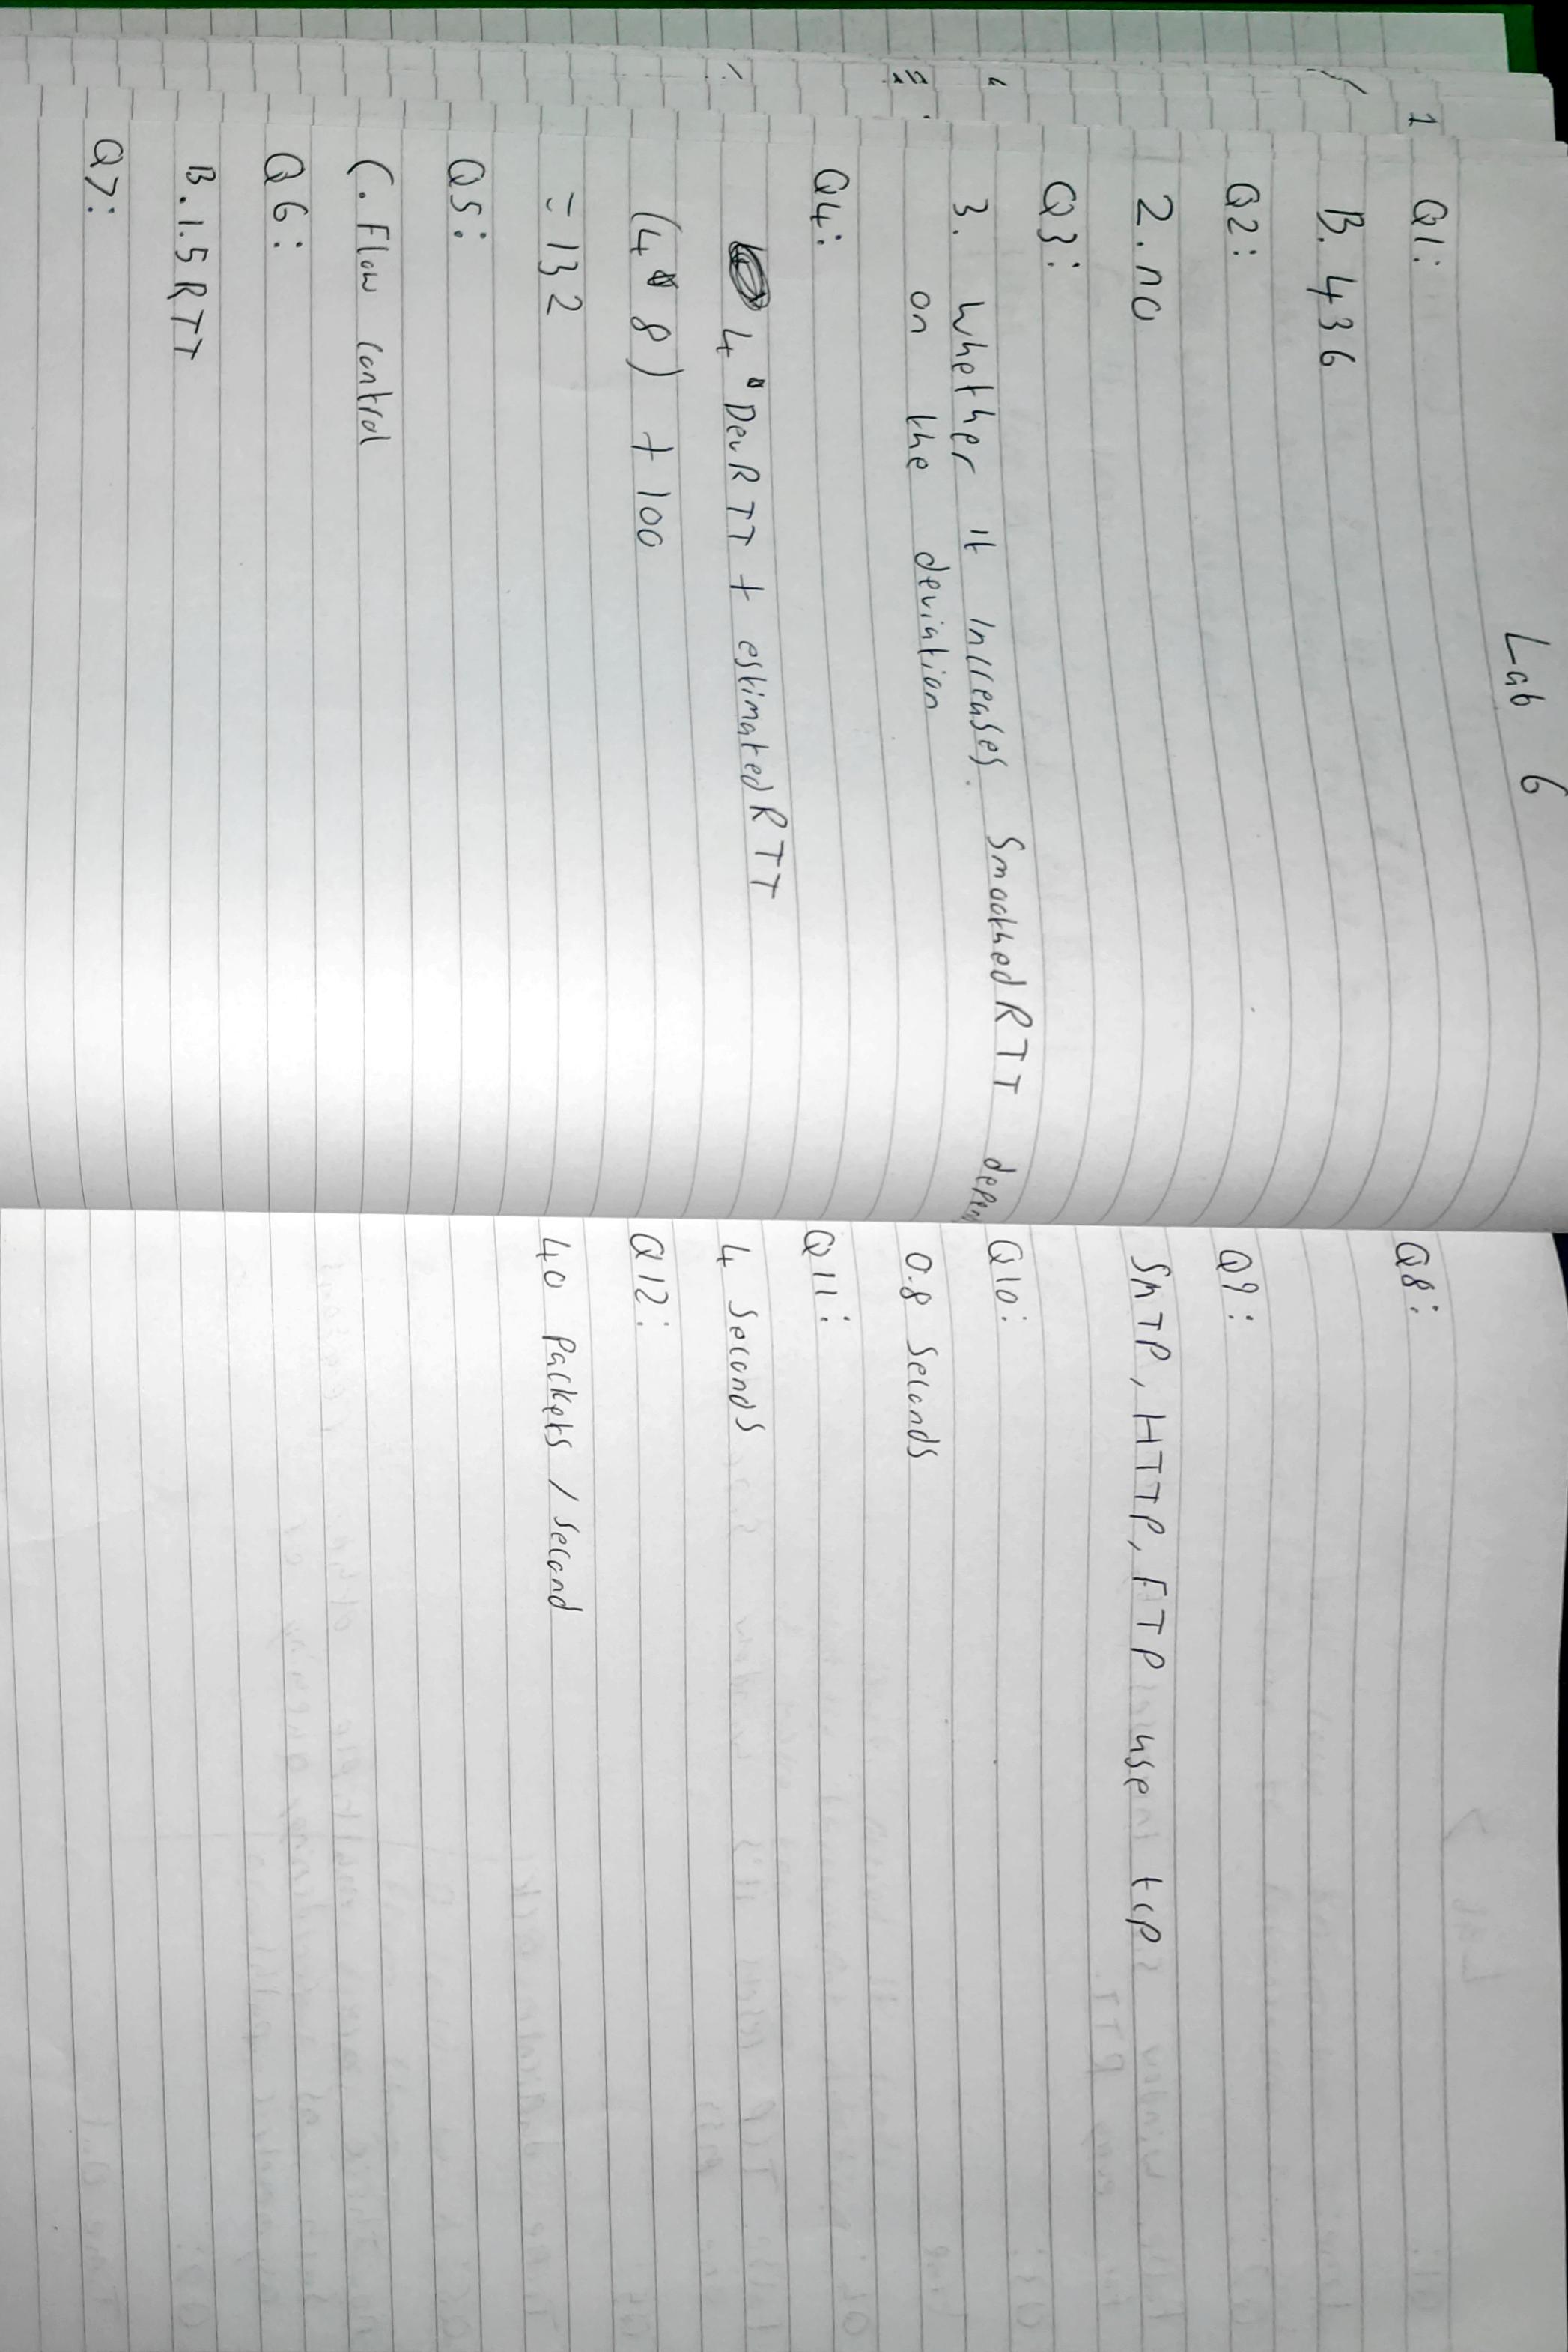 Lab 6
Q1:
B. 436
Q2:
2. no
Q3:
3. whether it increases SmoothedRTT depen
on the deviation
Q4:
4*DevRTT + estimatedRTT
(4*8) + 100
= 132
Q5:
C. Flow control
Q6:
B. 1.5RTT
Q7:
Q8:
Q9:
SMTP, HTTP, FTP use tcp
Q10:
0.8 Seconds
Q11:
4 Seconds
Q12:
40 Packets / second